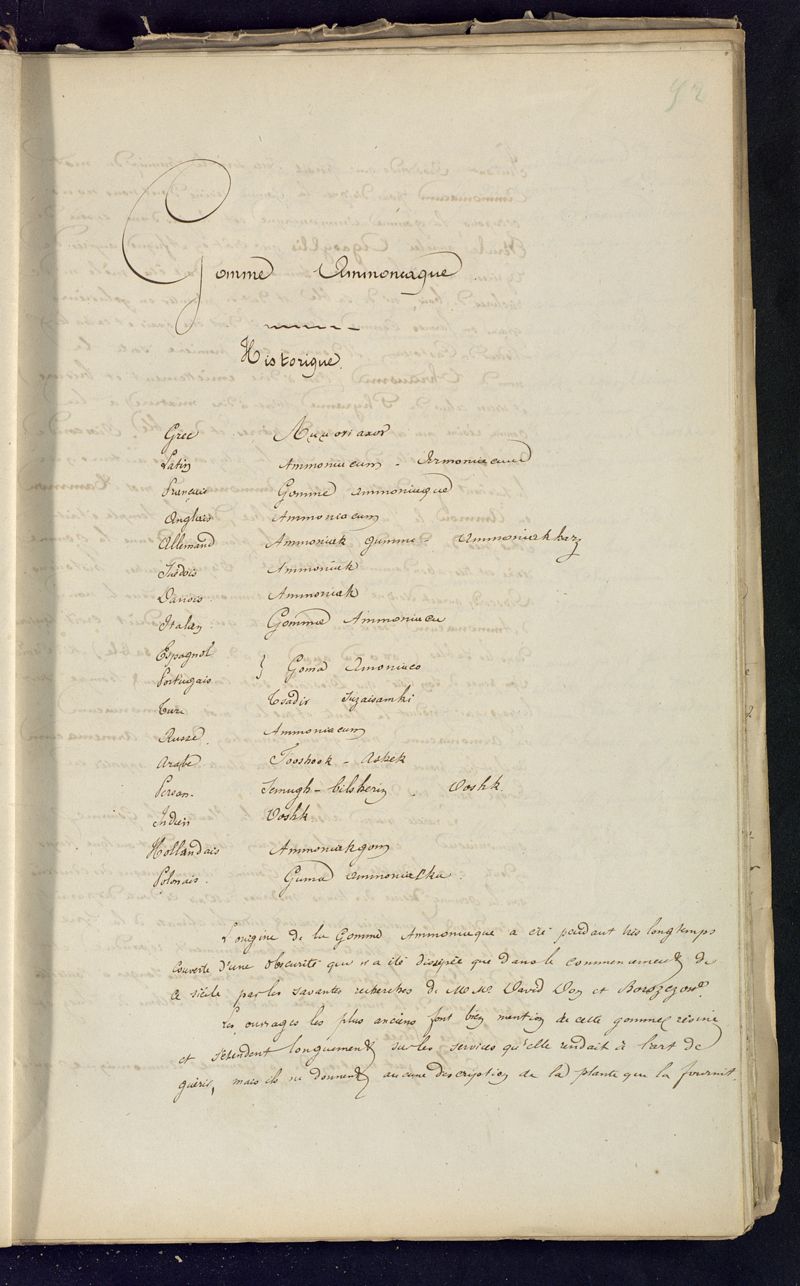 52
Gomme Ammoniaque
Historique.
Grec
Latin Ammoniacum - Armoniacum
Français Gomme ammoniaque
Anglais Ammoniacum
Allemand Ammoniak gummi. Ammoniakharz
Suédois Ammoniak
Danois. Ammoniak
Italien Gomma Ammoniaca
Espagnol
Portugais } Goma Amoniaco
Turc Tsadir
Russe. Ammoniacum
Arabe Fooshook - Ashek
Persan. Semugh-bilsherin. Ooshk.
Indien Ooshk
Hollandais Ammoniakgom
Polonais. Guma ammoniacka.
L'origine de la Gomme Ammoniaque a été pendant très longtemps
couverte d'une obscurité qui n'a été dissipée que dans le commencement de
ce siècle par les savantes recherches de MM. David Don et
Les ouvrages les plus anciens font bien mention de cette gomme résine
et s'étendent longuement sur les services qu'elle rendait à l'art de
guérir, mais ils ne donnent aucune description de la plante qui la fournit.